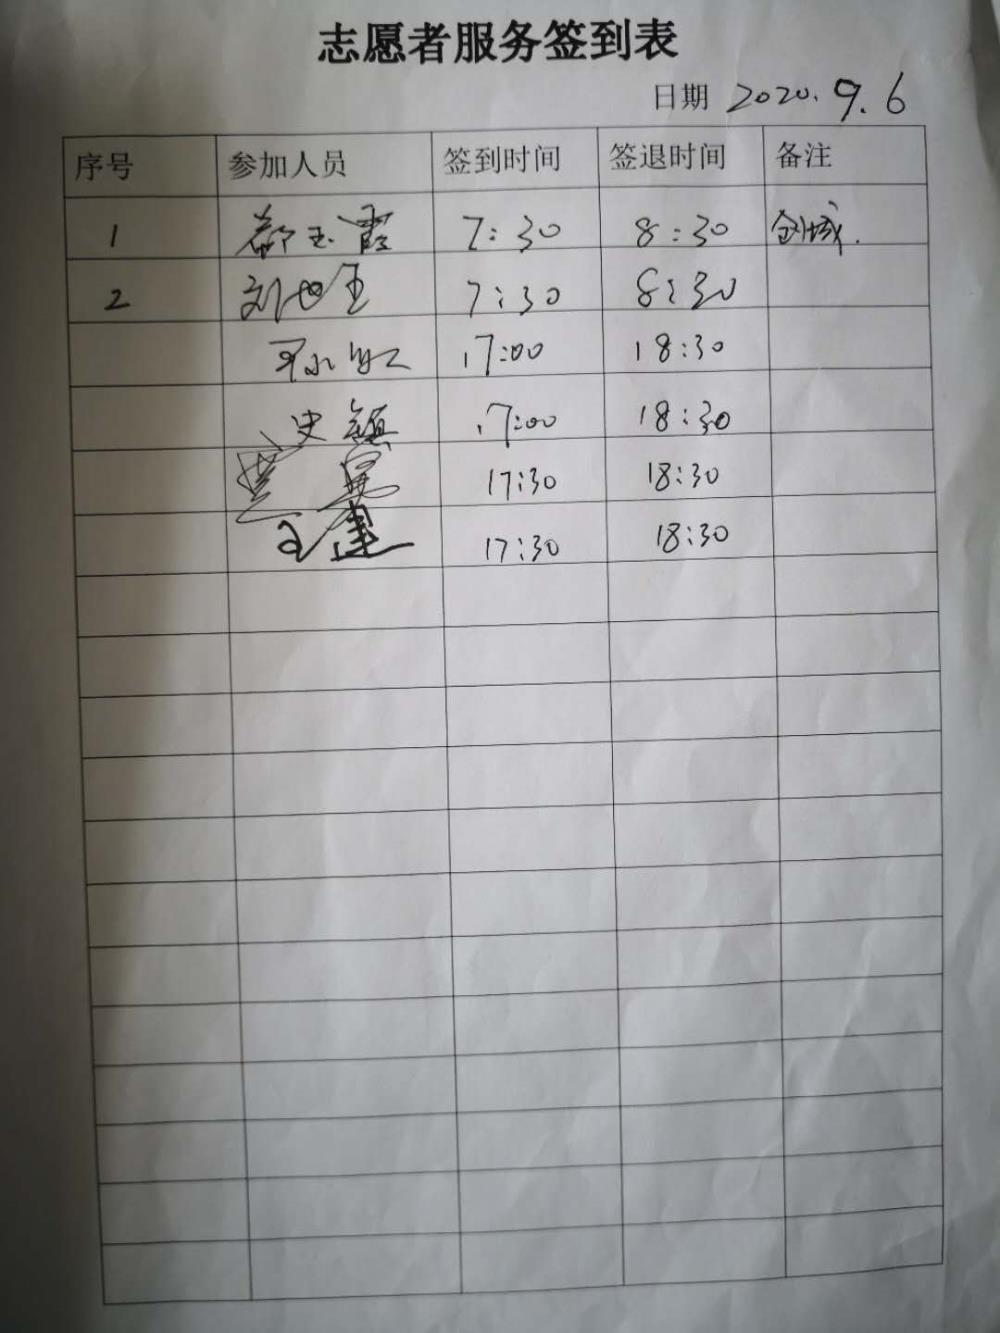 志愿者服务签到表
日期 2020.9.6
序号 参加人员 签到时间 签退时间 备注
1 郝玉霞 7:30 8:30 创城.
2 刘世玉 7:30 8:30
17:00 18:30
史镇 17:00 18:30
17:30 18:30
王建 17:30 18:30